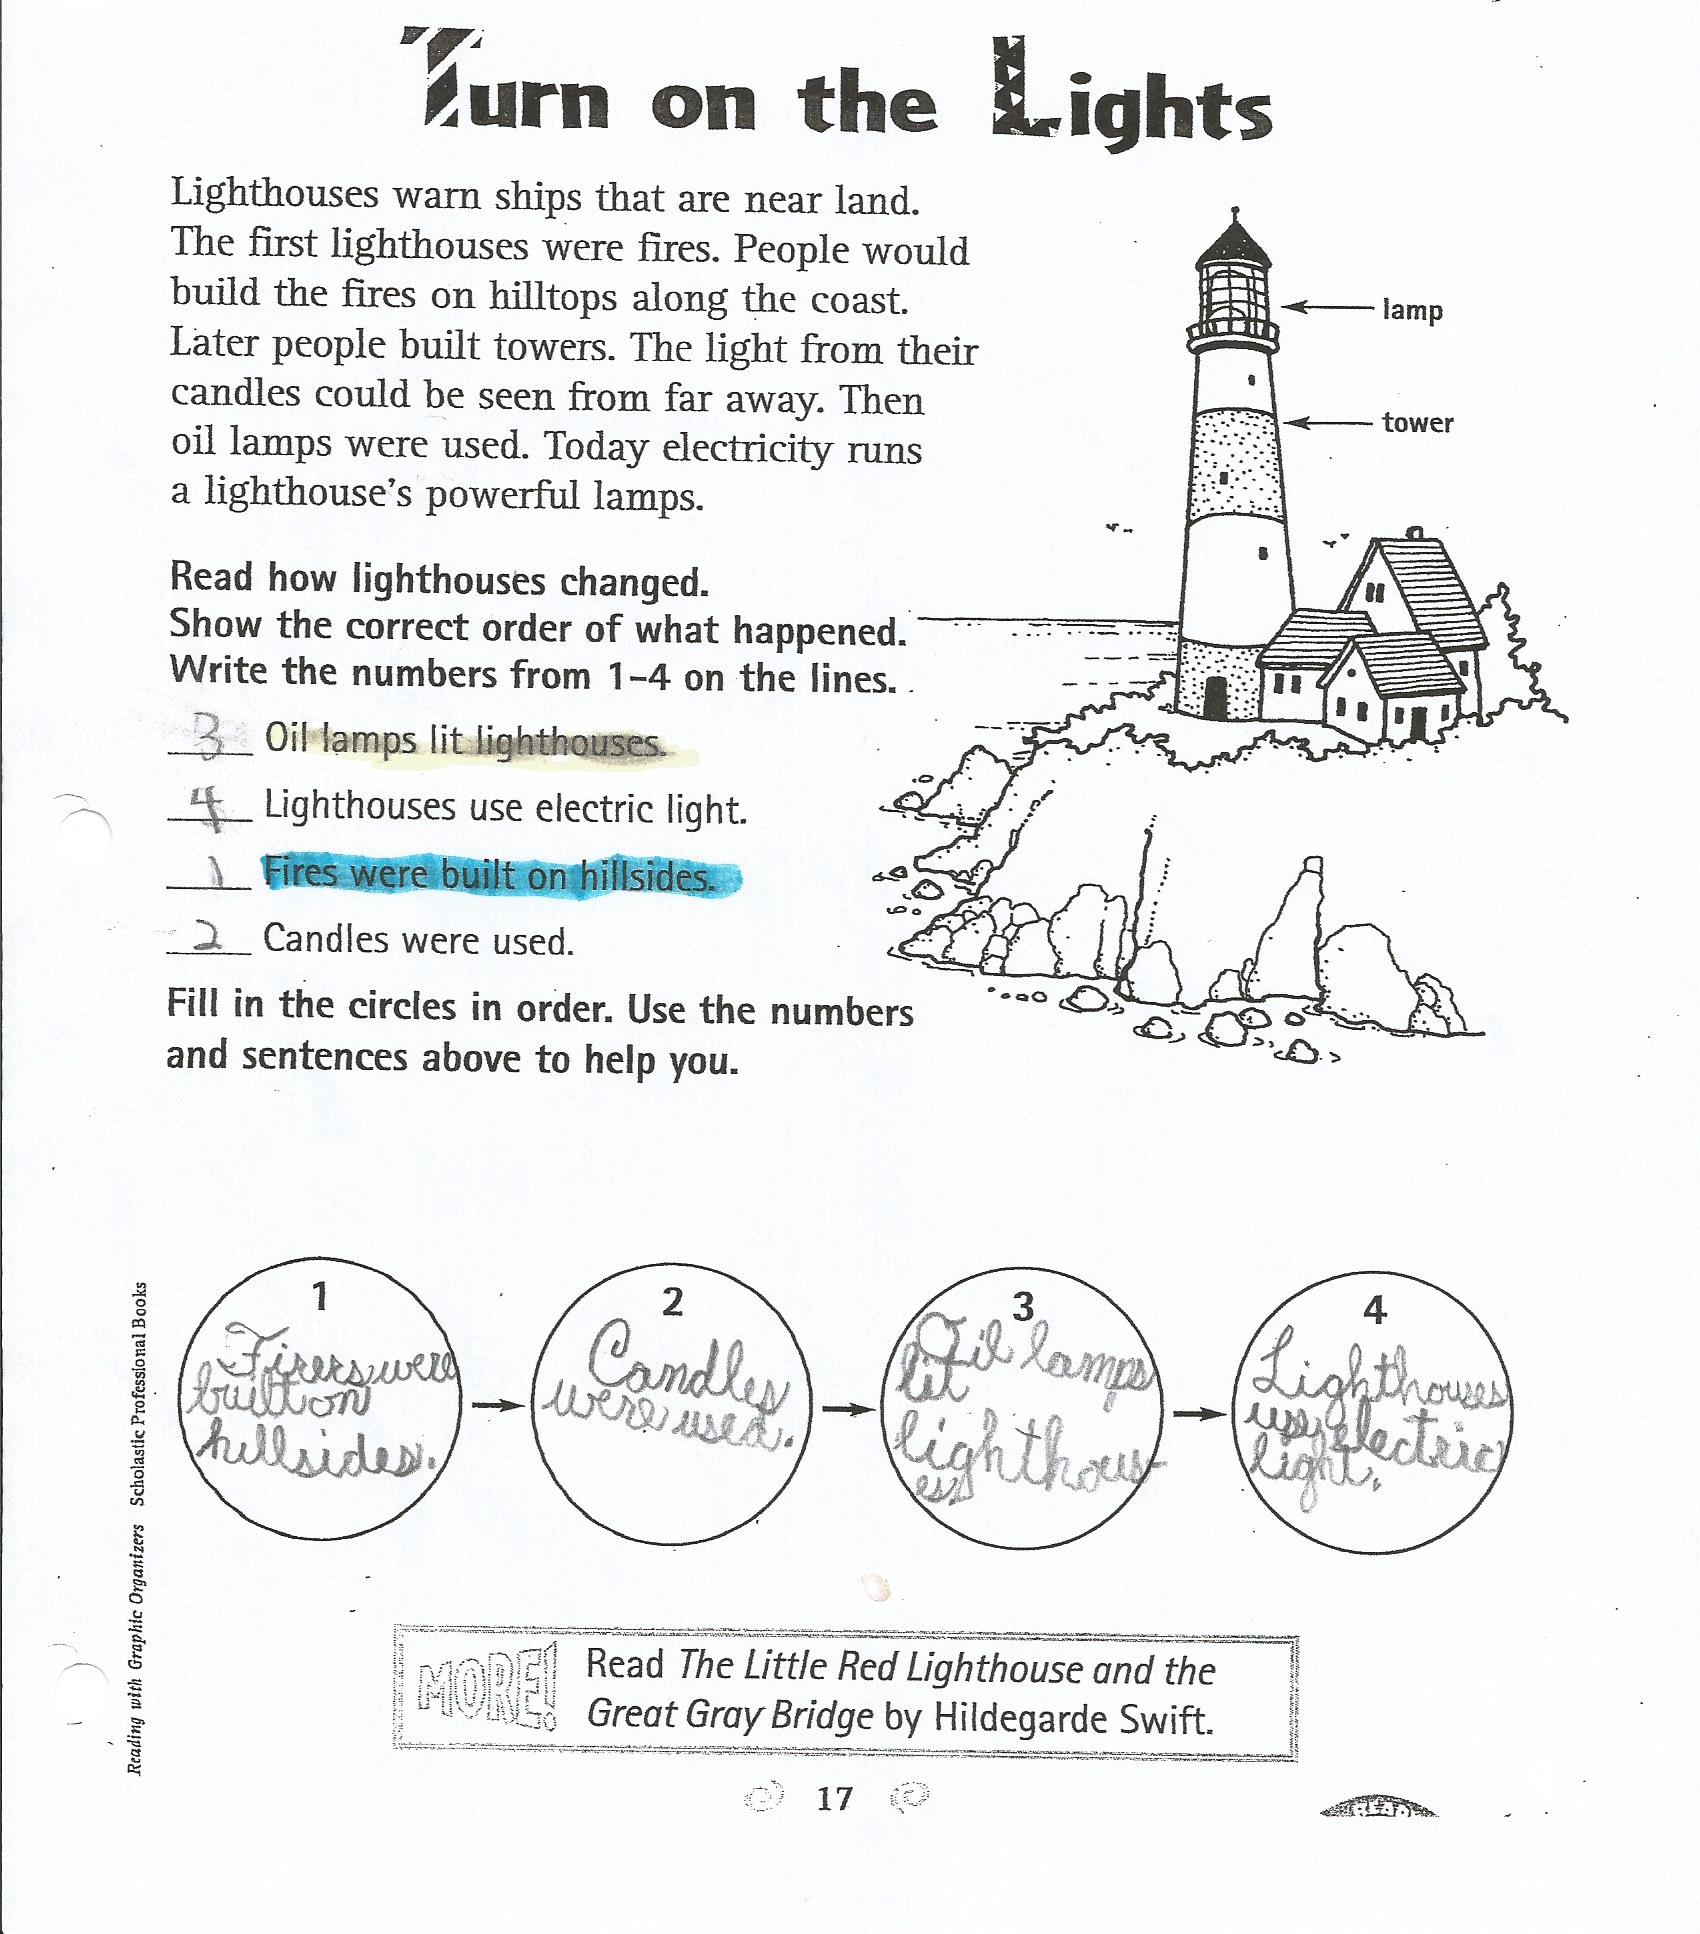 Turn on the Lights
Lighthouses warn ships that are near land.
The first lighthouses were fires. People would
build the fires on hilltops along the coast.
Later people built towers. The light from their
candles could be seen from far away. Then
oil lamps were used. Today electricity runs
a lighthouse's powerful lamps.
lamp
tower
Read how lighthouses changed.
Show the correct order of what happened.
Write the numbers from 1–4 on the lines.
3 Oil lamps lit lighthouses.
4 Lighthouses use electric light.
1 Fires were built on hillsides.
2 Candles were used.
Fill in the circles in order. Use the numbers
and sentences above to help you.
1
Firers were
built on
hillsides.
2
Candles
were used.
3
Oil lamps
lit
lighthous-
es
4
Lighthouses
use electric
light.
Reading with Graphic Organizers Scholastic Professional Books
MORE!
Read The Little Red Lighthouse and the
Great Gray Bridge by Hildegarde Swift.
17
READ